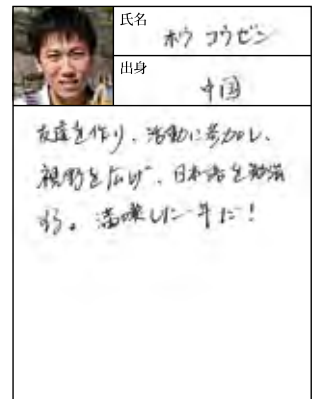 氏名
ホウ コウゼン
出身
中国
友達を作り、活動に参加し、
視野を広げ、日本語を勉強
する。満喫した一年だ！